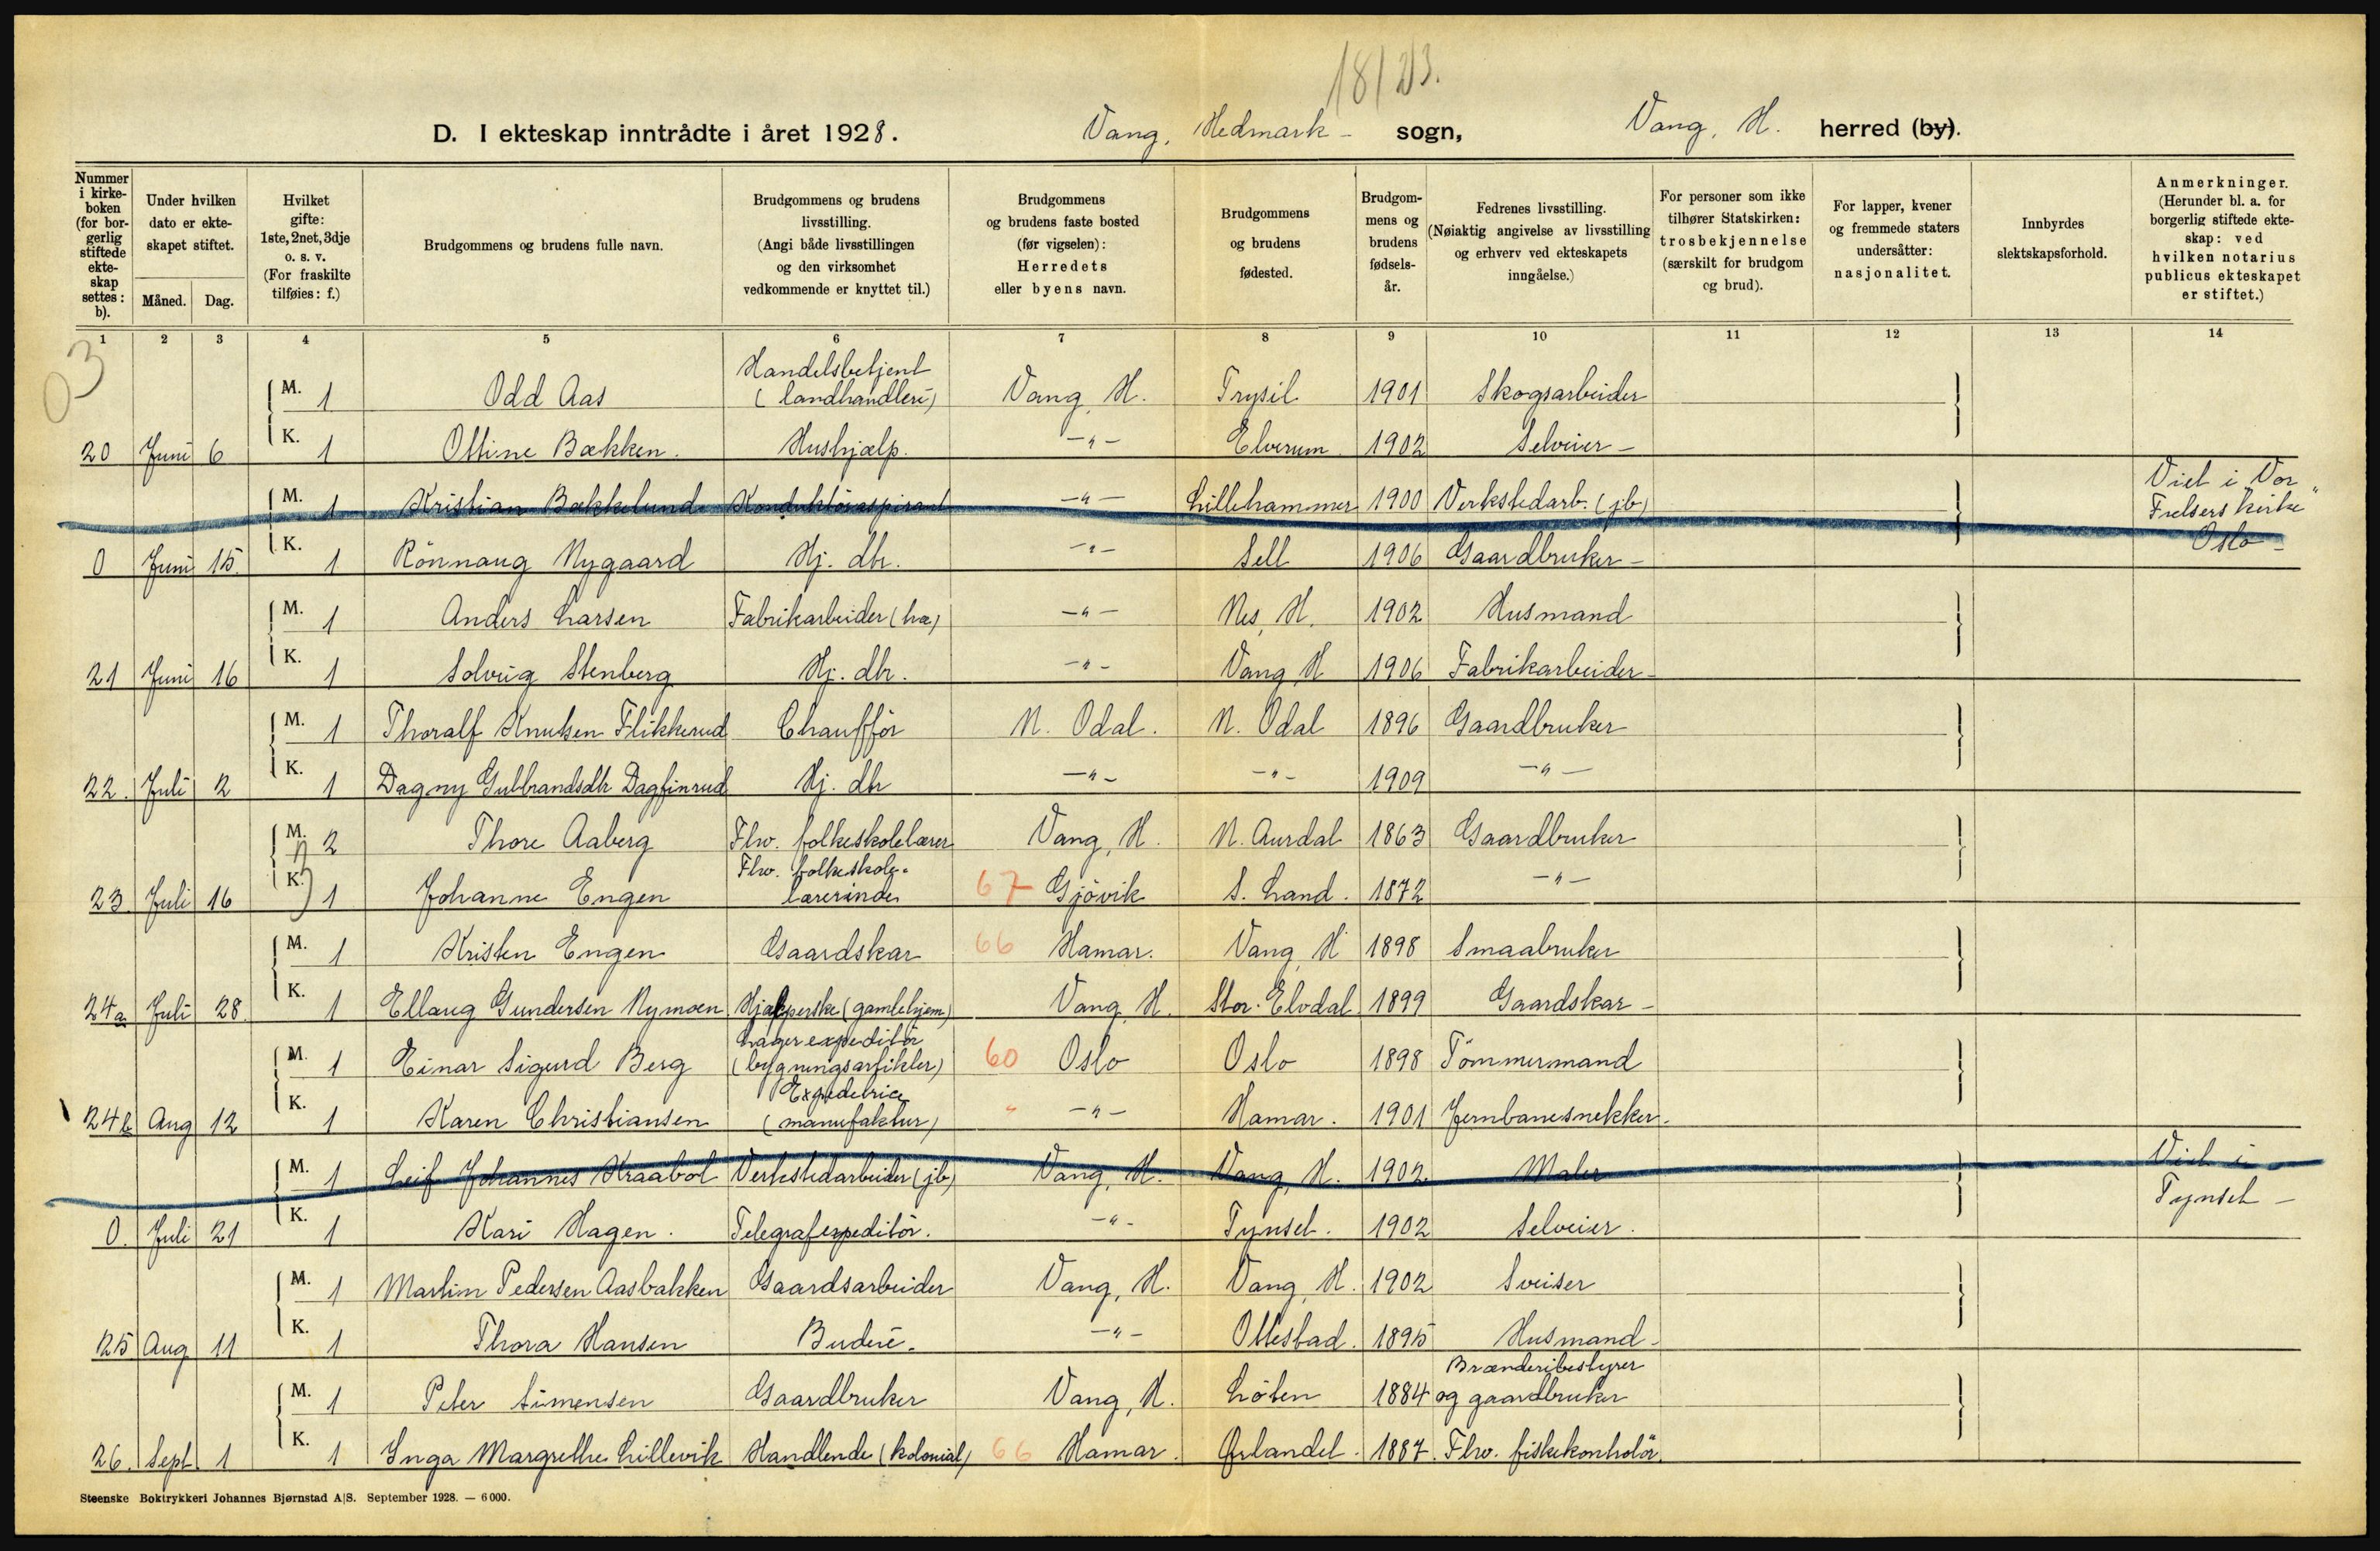 18/23.
D. I ekteskap inntrådte i året 1928. Vang, Hedmark - sogn, Vang, H. herred (by).
Nummer i kirke-boken (for bor-gerlig stiftede ekte-skap settes: b).
Under hvilken dato er ekte-skapet stiftet.
Måned. Dag.
Hvilket gifte: 1ste, 2net, 3dje o. s. v. (For fraskilte tilføies: f.)
Brudgommens og brudens fulle navn.
Brudgommens og brudens livsstilling. (Angi både livsstillingen og den virksomhet vedkommende er knyttet til.)
Brudgommens og brudens faste bosted (før vigselen): Herredets eller byens navn.
Brudgommens og brudens fødested.
Brudgom-mens og brudens fødsels-år.
Fedrenes livsstilling. (Nøiaktig angivelse av livsstilling og erhverv ved ekteskapets inngåelse.)
For personer som ikke tilhører Statskirken: trosbekjennelse (særskilt for brudgom og brud).
For lapper, kvener og fremmede staters undersåtter: nasjonalitet.
Innbyrdes slektskapsforhold.
Anmerkninger. (Herunder bl. a. for borgerlig stiftede ekte-skap: ved hvilken notarius publicus ekteskapet er stiftet.)
1 2 3 4 5 6 7 8 9 10 11 12 13 14
03
M. 1 Odd Aas Handelsbetjent (landhandleri) Vang, H. Trysil 1901 Skogsarbeider
20 Juni 6 K. 1 Ottine Bækken. Hushjælp. -"- Elverum 1902 Selveier -
M. 1 Kristian Bækkelund Konduktöraspirant -"- Lillehammer 1900 Verkstedarb. (jb) Viet i Vor Frelsers kirke Oslo -
0 Juni 15. K. 1 Rönnaug Nygaard Hj. dtr. -"- Sell 1906 Gaardbruker -
M. 1 Anders Larsen Fabrikarbeider (træ) -"- Nes, H. 1902 Husmand
21 Juni 16 K. 1 Solveig Stenberg Hj. dtr. -"- Vang H 1906 Fabrikarbeider -
M. 1 Thoralf Knutsen Flikkerud Chaufför N. Odal. N. Odal 1896 Gaardbruker
22. Juli 2 K. 1 Dagny Gulbrandsdtr Dagfinrud Hj. dtr -"- -"- 1909 -"-
M. 2 Thore Aaberg Fhv. folkeskolelærer Vang, H. N. Aurdal 1863 Gaardbruker
23 Juli 16 K. 1 Johanne Engen Fhv. folkeskole-lærerinde 67 Gjövik S. Land. 1872 -"-
M. 1 Kristen Engen Gaardskar 66 Hamar. Vang, H 1898 Smaabruker
24a Juli 28. K. 1 Ellaug Gundersen Nymoen Hjælperske (gamlehjem) Vang, H. Stor-Elvdal 1899 Gaardskar -
M. 1 Einar Sigurd Berg Lagerexpeditör (bygningsartikler) 60 Oslo Oslo 1898 Tömmermand
24b Aug 12 K. 1 Karen Christiansen Expeditrice (manufaktur) " -"- Hamar. 1901 Jernbanesnekker.
M. 1 Leif Johannes Kraaböl Verkstedarbeider (jb) Vang, H. Vang, H. 1902. Maler Viet i Tynset -
0. Juli 21 K. 1 Kari Hagen. Telegrafexpeditör. -"- Tynset. 1902 Selveier.
M. 1 Martin Pedersen Aasbakken Gaardsarbeider Vang, H. Vang, H. 1902 Sveiser
25 Aug 11 K. 1 Thora Hansen Budeie. -"- Ottestad. 1895 Husmand -
M. 1 Peter Simensen Gaardbruker Vang, H. Löten 1884 Brænderibestyrer og gaardbruker
26. Sept. 1 K. 1 Inga Margrethe Lillevik Handlende (kolonial) 66 Hamar. Ørlandet. 1887. Fhv. fiskekontrolör.
Steenske Boktrykkeri Johannes Bjørnstad A|S. September 1928. — 6000.